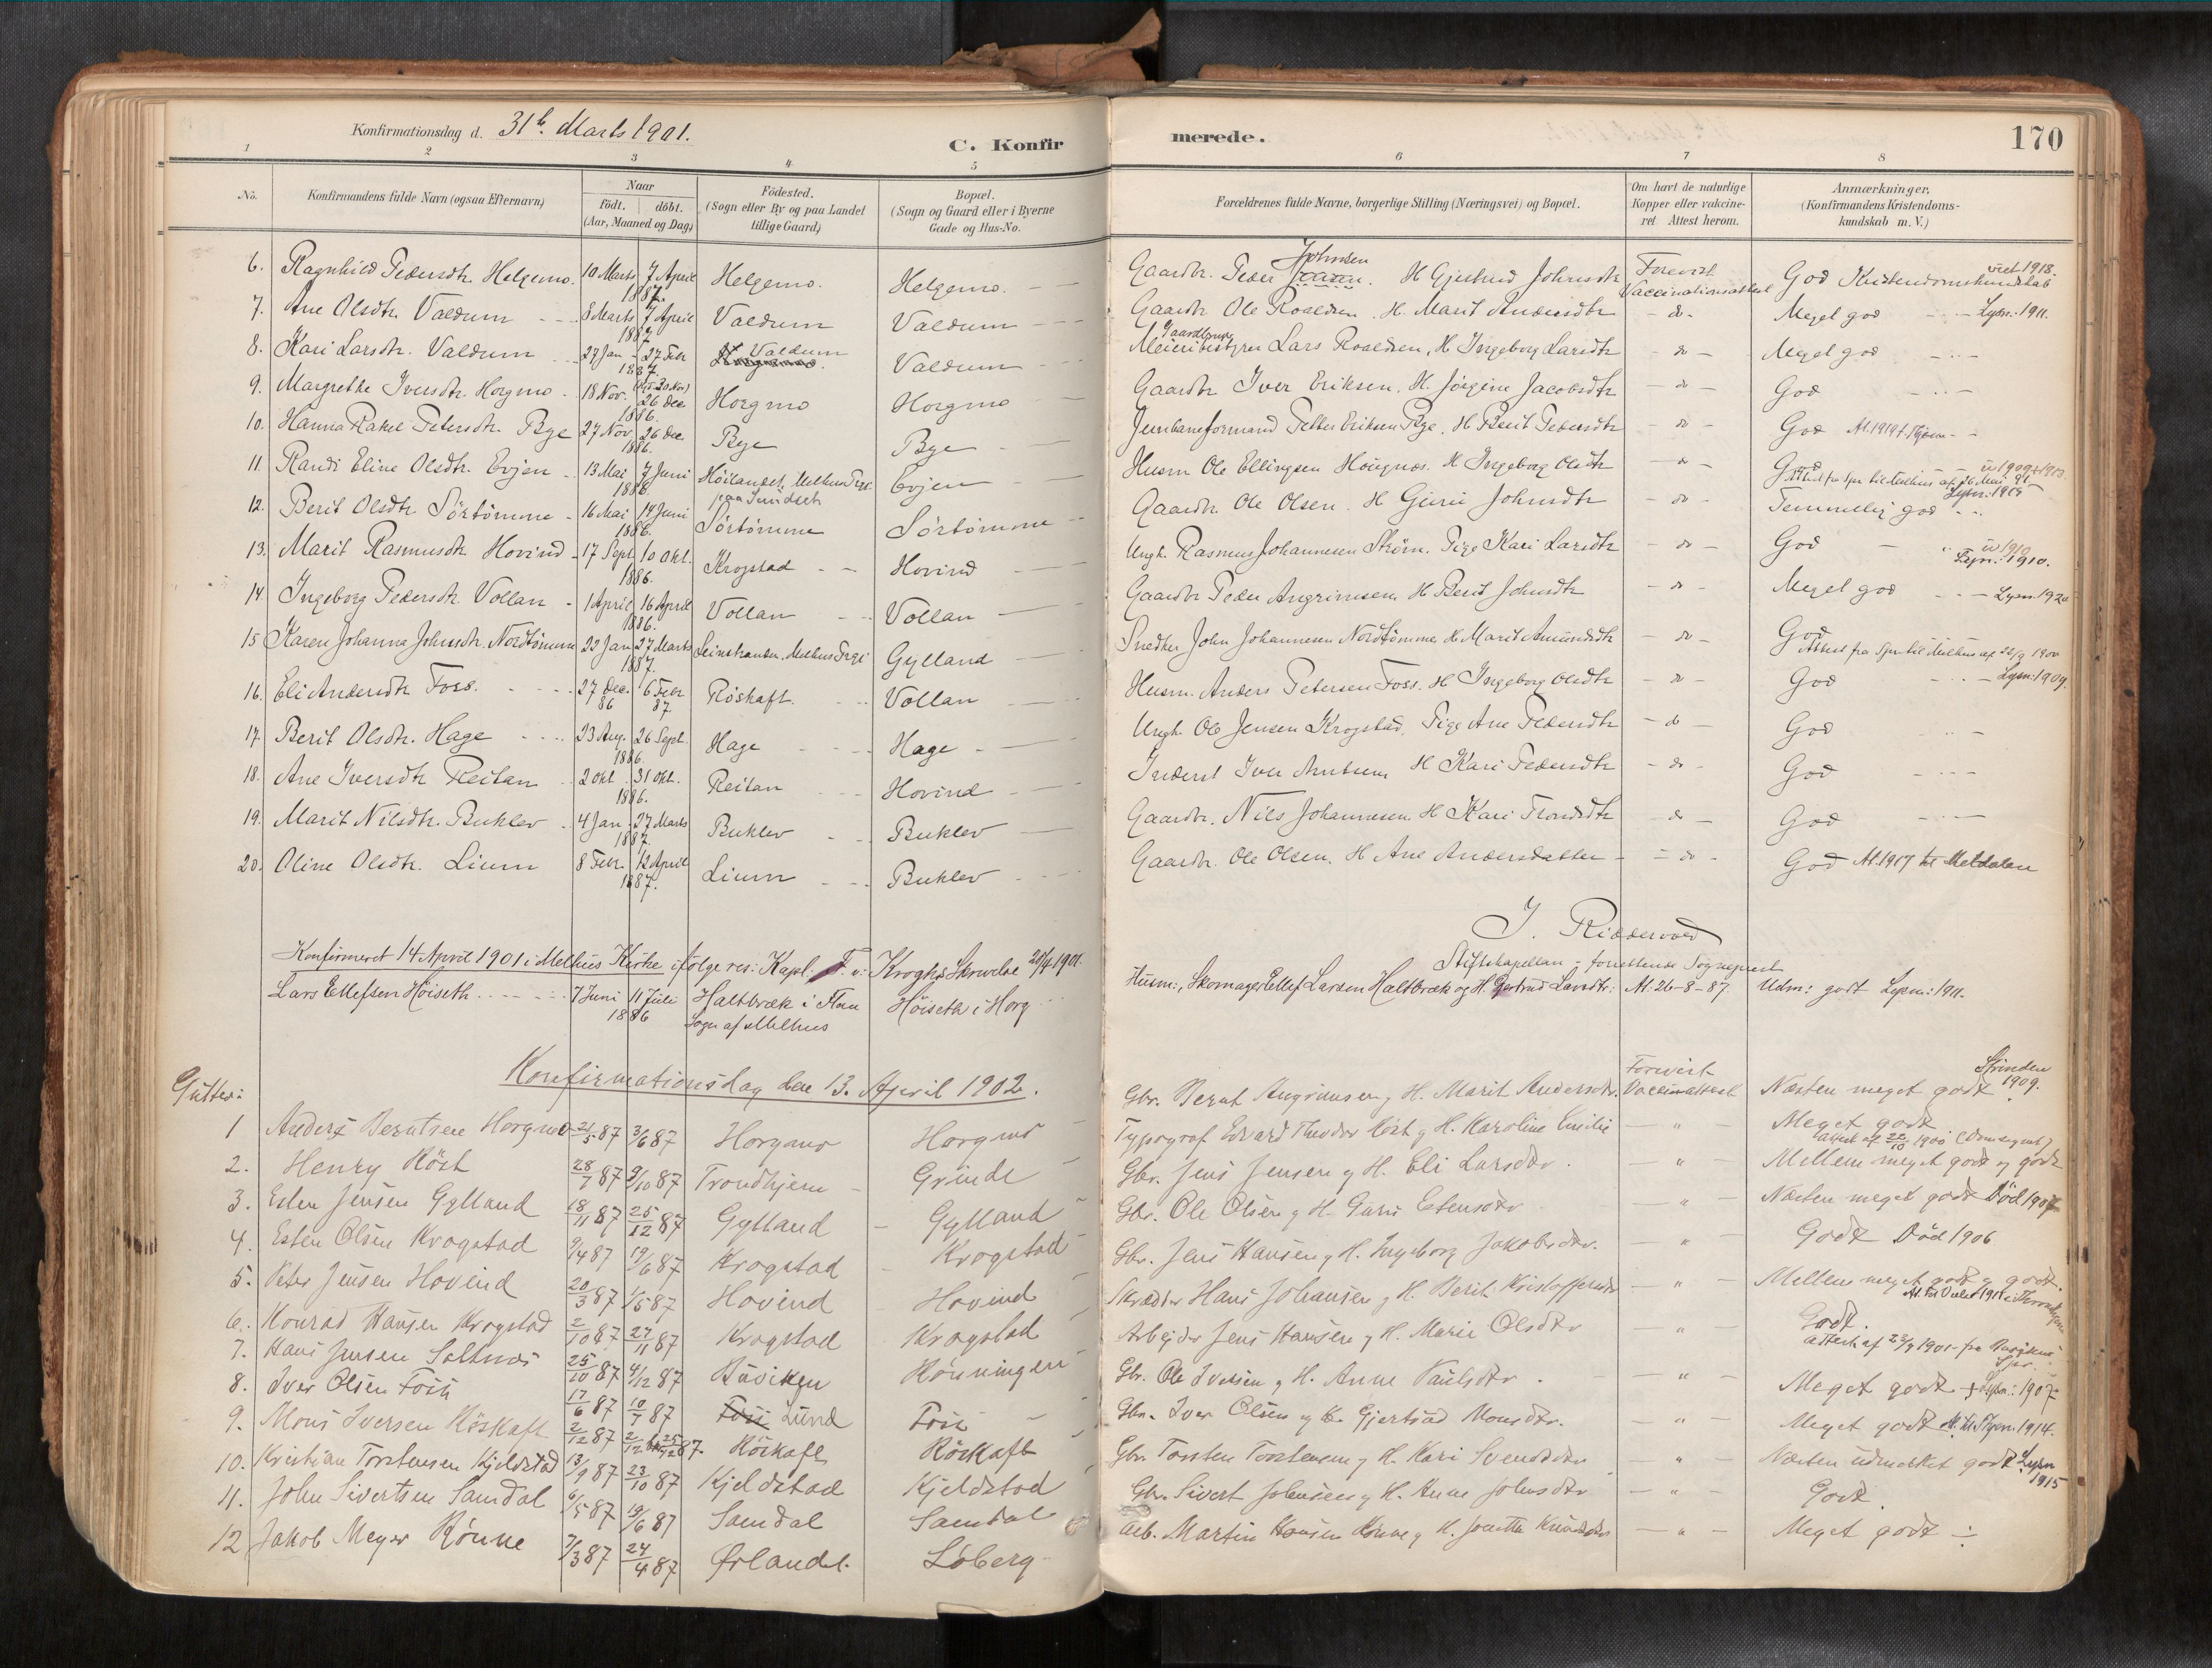 Konfirmationsdag d. 31te Marts 1901.
C. Konfir merede. 170
1 2 3 4 5 6 7 8
No. Konfirmandens fulde Navn (ogsaa Efternavn) Naar födt. döbt. (Aar, Maaned og Dag) Födested. (Sogn eller By og paa Landet tillige Gaard) Bopæl. (Sogn og Gaard eller i Byerne Gade og Hus-No. Forældrenes fulde Navne, borgerlige Stilling (Næringsvei) og Bopæl. Om havt de naturlige Kopper eller vakcineret Attest herom. Anmærkninger. (Konfirmandens Kristendomskundskab m. V.)
6. Ragnhild Pedersdtr. Helgemo. 10 Marts 7 April 1887. Helgemo. Helgemo. Gaardbr. Peder Johnsen H Gjertrud Johnsdtr Forevist Vaccinationsattest God Kristendomskundskab viet 1918.
7. Ane Olsdtr. Valdum 8 Marts 7 April 1887 Valdum Valdum Gaardbr Ole Roaldsen. H. Marit Andersdtr - do - Meget god Lysn. 1911.
8. Kari Larsdtr. Valdum 27 Jan 27 Febr 1887. Valdum Valdum Gaardbruger Meieribestyrer Lars Roaldsen, H Ingeborg Larsdtr - do - Meget god
9. Margrethe Iversdtr. Horgmo 18 Nov. 26 Dec 1886. Horgmo Horgmo Gaardbr Iver Eriksen. H. Jörgine Jacobsdtr - do - God
10. Hanna Rakel Petersdtr. Bye 27 Nov. 26 Dec. 1886. Bye Bye Jernbaneformand Petter Eriksen Bye. H Berit Pedersdtr - do - God
11. Randi Eline Olsdtr. Evjen 13 Mai 7 Juni 1886. Höilandet, Melhus Prgj. paa Evjen Husm Ole Ellingsen H Ingeborg Olsdtr - do - God
12. Berit Olsdtr Sörtömme 16 Mai 14 Juni 1886. Sörtömme Sörtömme Gaardbr. Ole Olsen. H Guru Johnsdtr - do - Temmelig god
13. Marit Rasmusdtr Hovind 17 Sept. 10 Okt. 1886. Krogstad Hovind Ungk. Rasmus Johannesen Pige Kari Larsdtr - do - God Lysn. 1910.
14. Ingeborg Pedersdtr. Vollan 1 April 16 April 1886. Vollan Vollan Gaardbr Peder Angrimsen H Berit Johnsdtr - do - Meget god
15 Karen Johanna Johnsdtr. Nordtömme 22 Jan 27 Marts 1887. Leinstranden, Melhus Prgj Gylland Snedker John Johannesen Nordtömme H. Marit Amundsdtr - do - God Attest fra Spr. til Melhus af 22/9 1900
16. Eli Andersdtr Foss. 27 Dec. 86 6 Febr 87 Röskaft. Vollan Husm. Anders Petersen Foss. H Ingeborg Olsdtr - do - God Lysn: 1909.
17. Berit Olsdtr. Hage 23 Aug. 26 Sept. 1886. Hage Hage Ungk. Ole Jensen Krogstad. Pige Ane Pedersdtr - do - God
18. Ane Iversdtr Reitan 2 Okt. 31 Okt. 1886. Reitan Hovind Inderst Iver H Kari Pedersdtr - do - God
19. Marit Nilsdtr. Buklev 4 Jan. 27 Marts 1887. Buklev Buklev Gaardbr. Nils Johannesen H Kari Trondsdtr - do - God
20. Oline Olsdtr. Lium 8 Febr. 12 April 1887. Lium Buklev Gaardbr. Ole Olsen. H Ane Andersdatter - do - God At. 1917 til Meldalen
J. Riddervold
Stiftskapellan - forrettende Sogneprest
Konfirmeret 14 April 1901 i Melhus Kirke ifölge res: Kapl: F. v: Kroghs Skrivelse 20/4 1901.
Lars Ellefsen Höiseth 7 Juni 11 Juli 1886 Haltbræk i Flaa Sogn af Melhus Höiseth i Horg Husm:, Skomager Ellef Larsen Haltbræk og H. Gjertrud Larsdtr: At. 26-8-87. Udm: godt Lysn: 1911.
Konfirmationsdag den 13. April 1902.
Gutter:
1 Anders Berntsen Horgmo 21/5 87 3/6 87 Horgmo Horgmo Gbr. Bernt Angrimsen og H. Marit Andersdtr. Forevist Vaccinattest Næsten meget godt Strinden 1909.
2. Henry Röst 28/7 87 9/10 87 Trondhjem Grinde Typograf Edvard Theodor Röst og H. Karoline Emilie - " - Meget godt
3. Esten Jensen Gylland 18/11 87 25/12 87 Gylland Gylland Gbr. Jens Jensen og H. Eli Larsdtr. - " - Mellem meget godt og godt
4. Esten Olsen Krogstad 9/4 87 19/6 87 Krogstad Krogstad Gbr. Ole Olsen og H. Guru Estensdtr - " - Næsten meget godt Död 1907
5. Peter Jensen Hovind 20/3 87 1/5 87 Hovind Hovind Gbr. Jens Hansen og H. Ingeborg Jakobsdtr. - " - Godt Död 1906
6. Konrad Hansen Krogstad 2/10 87 27/11 87 Krogstad Krogstad Skrædder Hans Johansen og H. Berit Kristoffersdtr - " - Mellem meget godt og godt.
7. Hans Jensen Saltnes 25/10 87 4/12 87 Buviken Rönningen Arbejder Jens Hansen og H. Marie Olsdtr - " - Godt.
8. Iver Olsen Foss 17/6 87 10/7 87 Lund Foss Gbr. Ole Iversen og H. Anne Paulsdtr. - " - Meget godt Lysn: 1907
9. Mons Iversen Röskaft 2/12 87 25/12 87. Röskaft Röskaft Gbr. Iver Olsen og H. Gjertrud Monsdtr. - " - Meget godt 1914.
10. Kristian Torstensen Kjeldstad 13/9 87 23/10 87 Kjeldstad Kjeldstad Gbr. Torsten Torstensen og H. Kari Svendsdtr - " - Næsten udmerket godt Lysn 1915
11. John Sivertsen Samdal 6/5 87 19/6 87 Samdal Samdal Gbr. Sivert Johnsen og H. Anne Johnsdtr - " - Godt.
12 Jakob Meyer Rönne 7/3 87 24/4 87 Ørlandet. Löberg Arb. Martin Hansen Rönne og H. - " - Meget godt